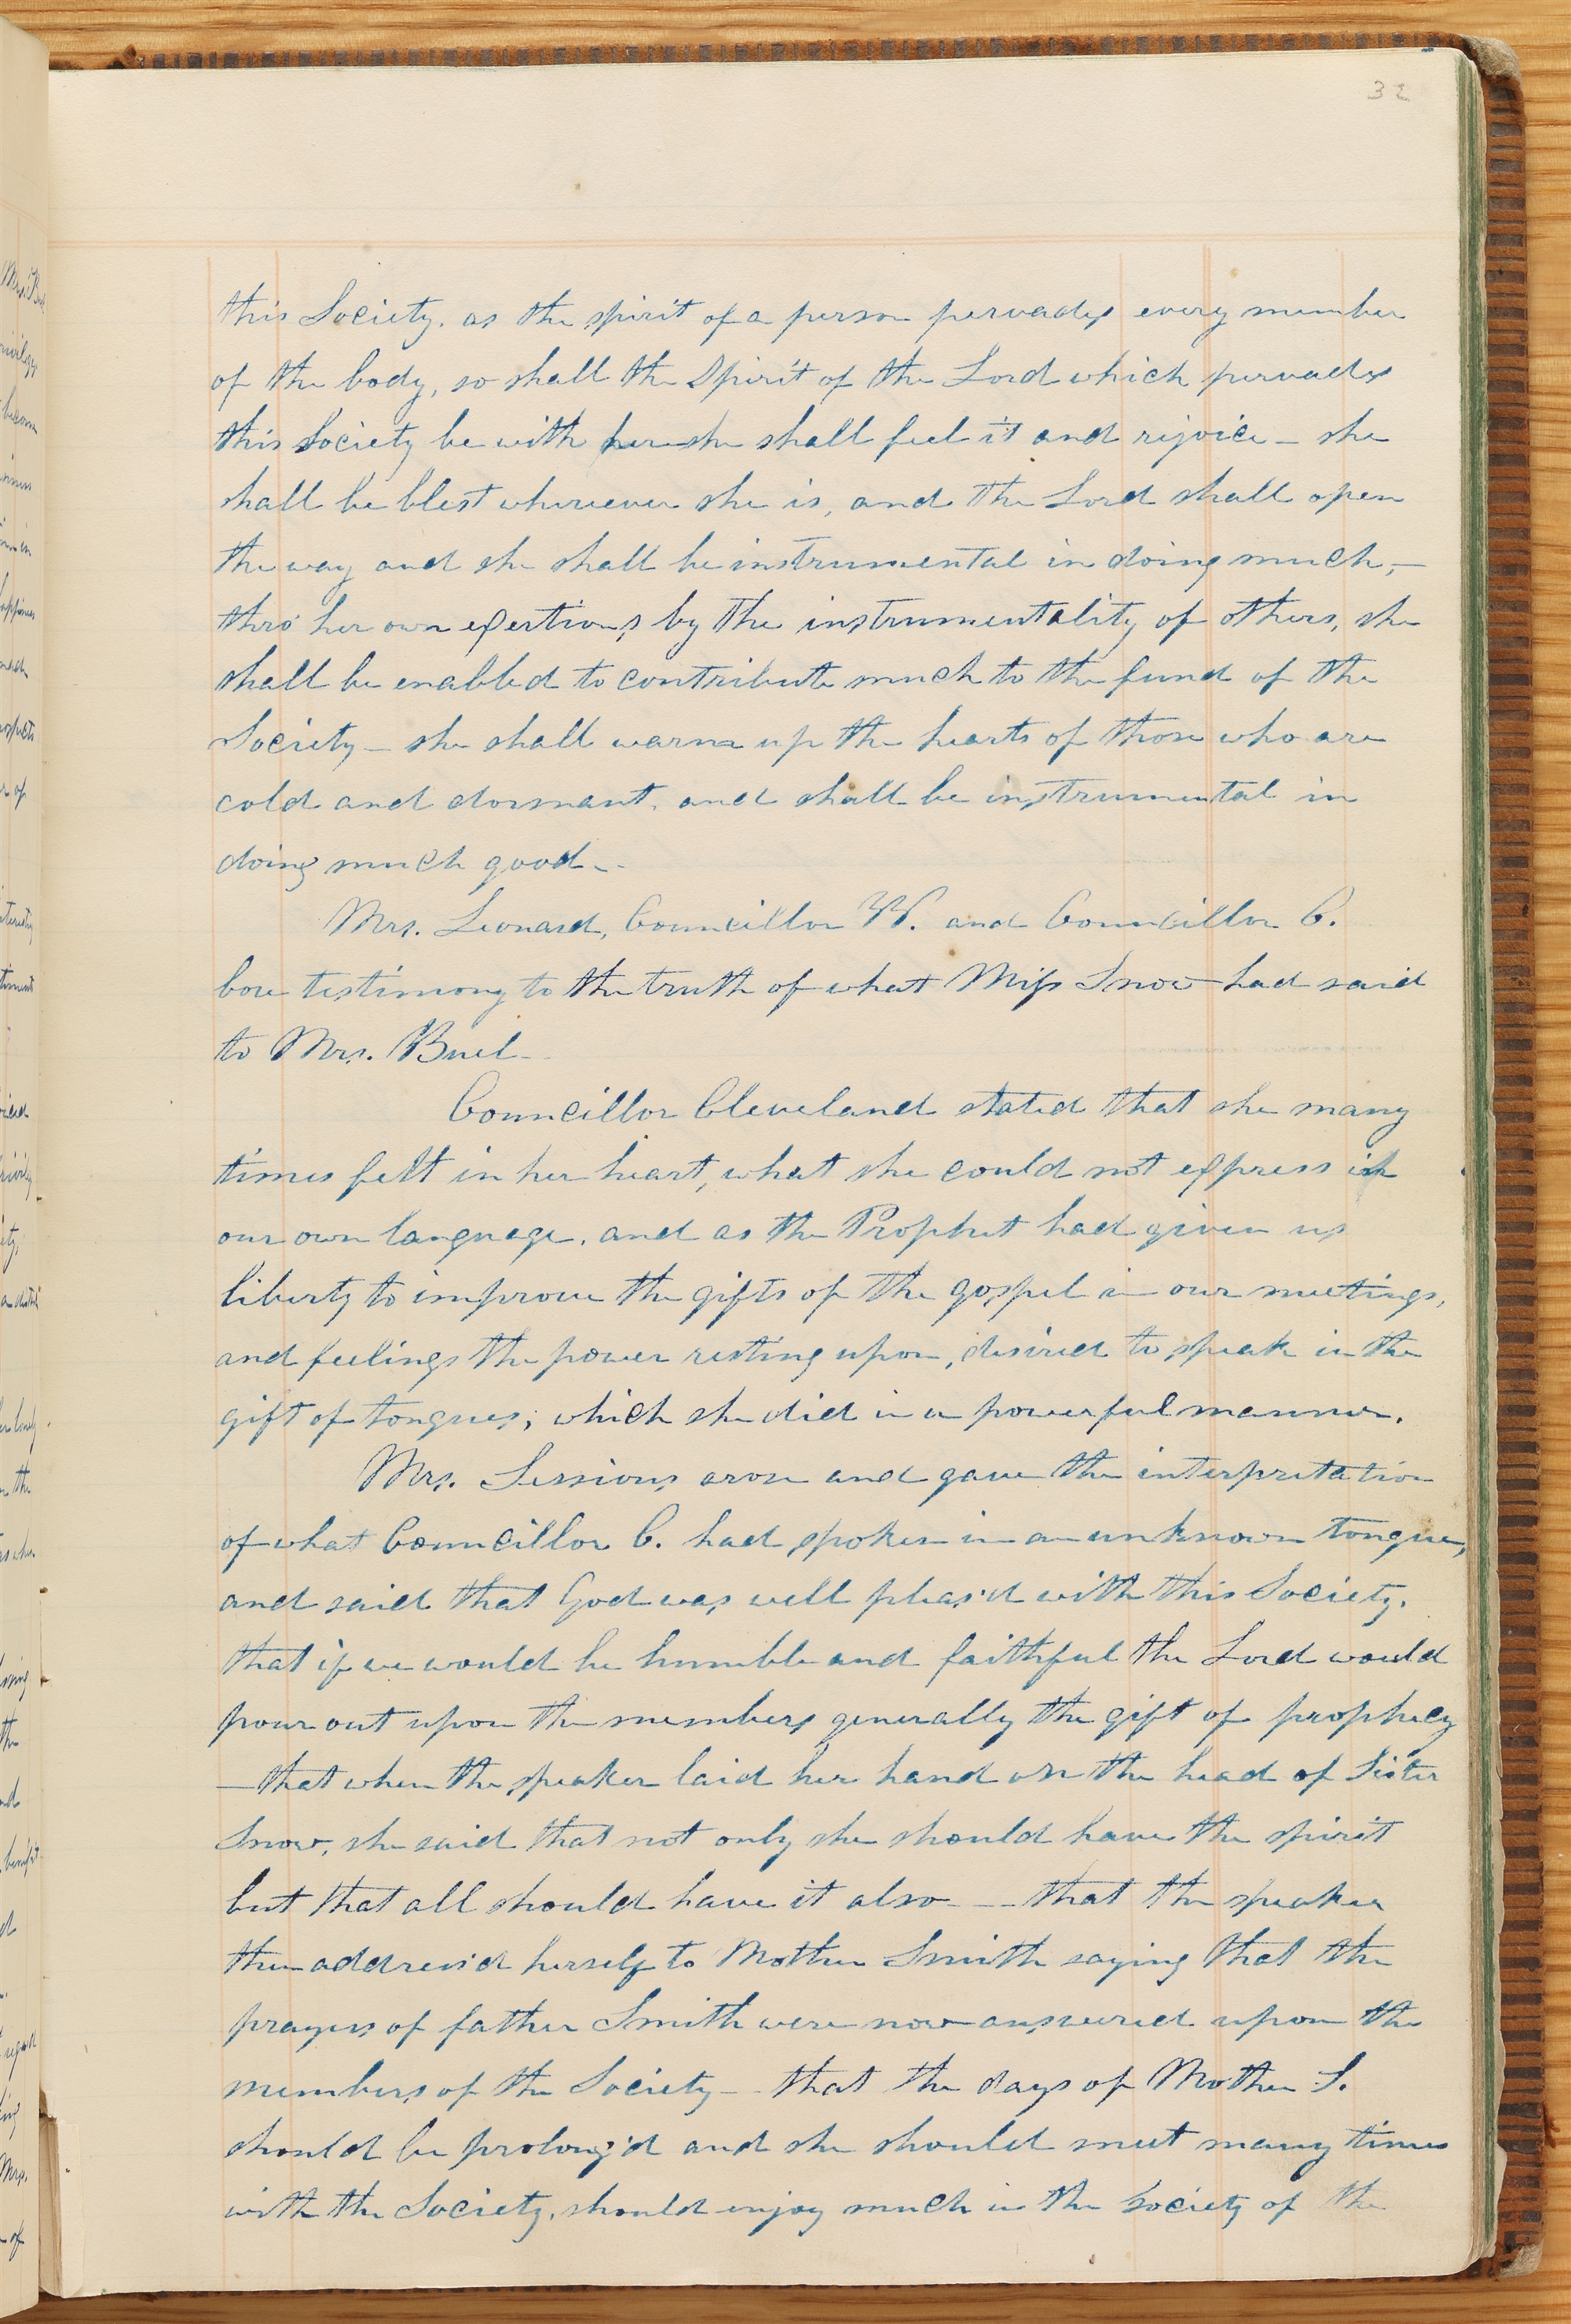 32
this Society. as the spirit of a person pervades every member
of the body, so shall the Spirit of the Lord which pervades
this Society be with her she shall feel it and rejoice — she
shall be blest wherever she is, and the Lord shall open
the way and she shall be instrumental in doing much, —
thro' her own exertions by the instrumentality of others, she
shall be enabled to contribute much to the fund of the
Society — she shall warm up the hearts of those who are
cold and dormant, and shall be instrumental in
doing much good. —
Mrs. Leonard, Councillor W. and Councillor C.
bore testimony to the truth of what Miss Snow had said
to Mrs. Buel —
Councillor Cleveland stated that she many
times felt in her heart, what she could not express in
our own language, and as the Prophet had given us
liberty to improve the gifts of the gospel in our meetings,
and feelings the power resting upon, desired to speak in the
gift of tongues; which she did in a powerful manner.
Mrs. Sessions arose and gave the interpretation
of what Councillor C. had spoken in an unknown tongue,
and said that God was well pleas'd with this Society.
that if we would be humble and faithful the Lord would
pour out upon the members generally the gift of prophecy
— that when the speaker laid her hand on the head of Sister
Snow, she said that not only she should have the spirit
but that all should have it also — — that the speaker
then address'd herself to Mother Smith saying that the
prayers of father Smith were now answered upon the
members of the Society — that the days of Mother S.
should be prolong'd and she should meet many times
with the Society, should enjoy much in the society of the